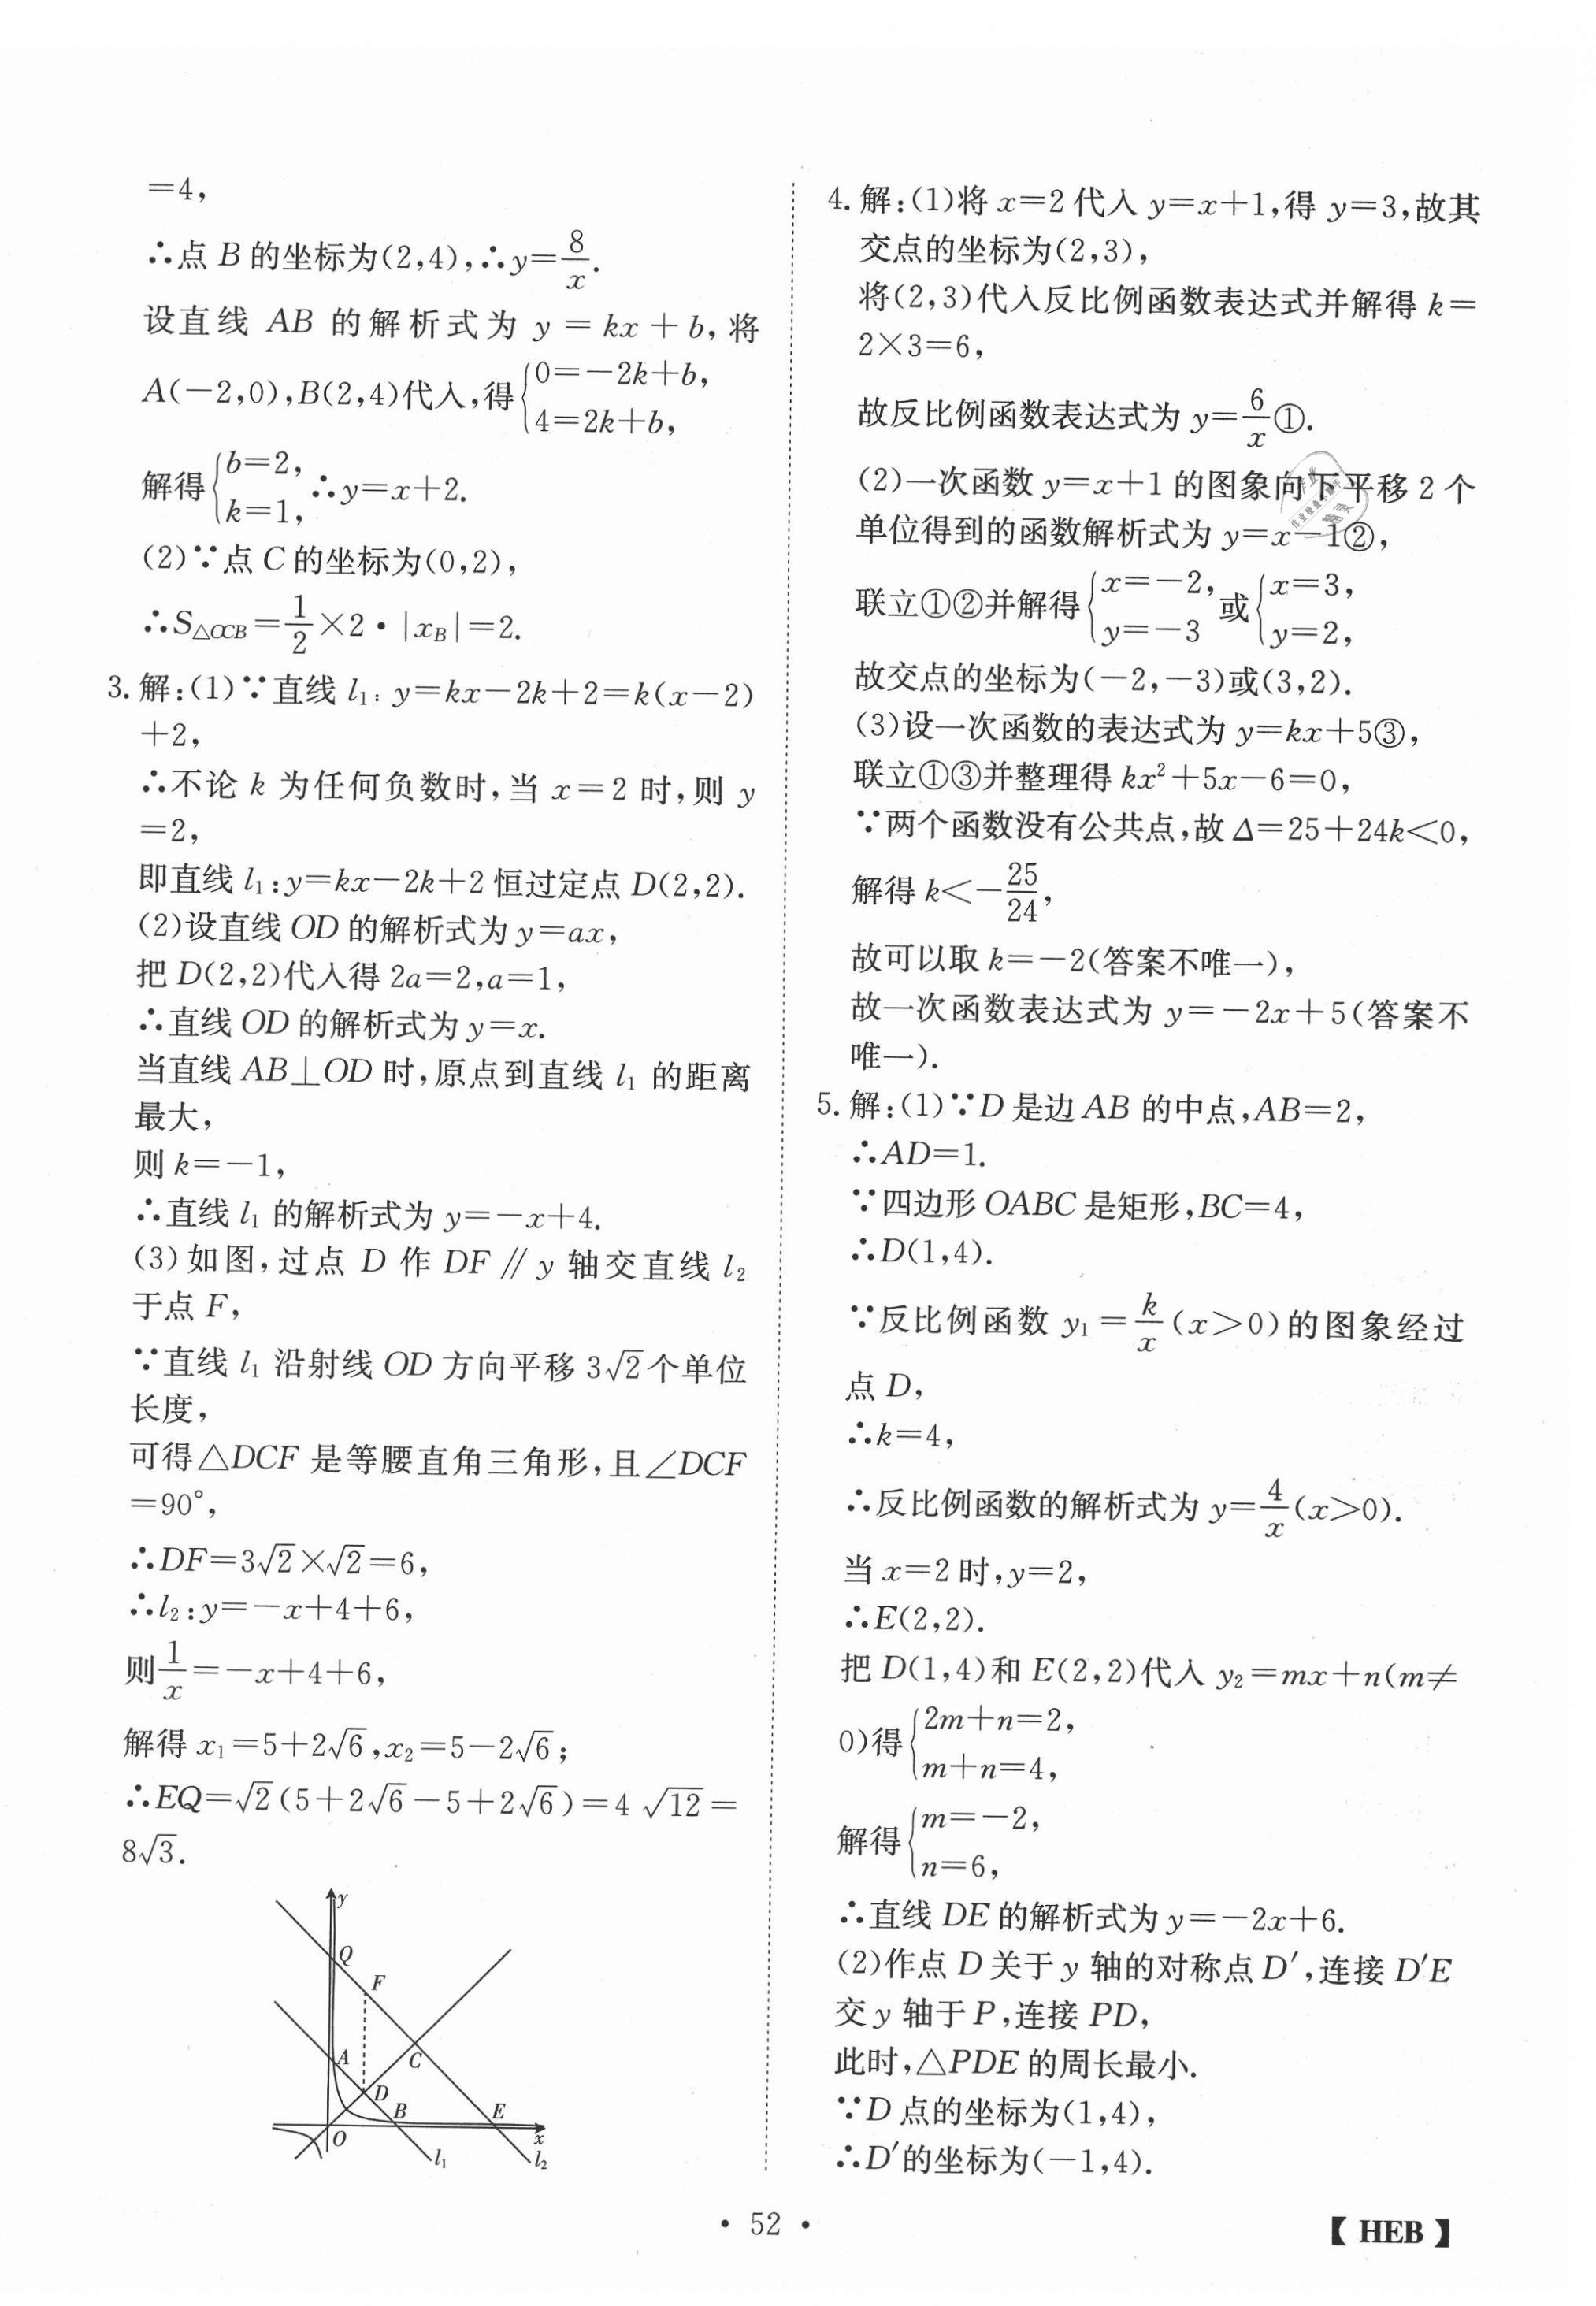 =4,
∴点 B 的坐标为(2,4),∴y=8/x.
设直线 AB 的解析式为 y=kx+b,将
A(-2,0),B(2,4)代入,得{0=-2k+b, 4=2k+b,
解得{b=2, k=1, ∴y=x+2.
(2)∵点 C 的坐标为(0,2),
∴S△OCB=1/2×2·|x_B|=2.
3. 解:(1)∵直线 l₁: y=kx-2k+2=k(x-2)
+2,
∴不论 k 为任何负数时,当 x=2 时,则 y
=2,
即直线 l₁:y=kx-2k+2 恒过定点 D(2,2).
(2)设直线 OD 的解析式为 y=ax,
把 D(2,2)代入得 2a=2,a=1,
∴直线 OD 的解析式为 y=x.
当直线 AB⊥OD 时,原点到直线 l₁ 的距离
最大,
则 k=-1,
∴直线 l₁ 的解析式为 y=-x+4.
(3)如图,过点 D 作 DF∥y 轴交直线 l₂
于点 F,
∵直线 l₁ 沿射线 OD 方向平移 3√2个单位
长度,
可得△DCF 是等腰直角三角形,且∠DCF
=90°,
∴DF=3√2×√2=6,
∴l₂:y=-x+4+6,
则1/x=-x+4+6,
解得 x₁=5+2√6,x₂=5-2√6;
∴EQ=√2(5+2√6-5+2√6)=4√12=
8√3.
y
Q
F
A
C
D
B
E
O
x
l₁
l₂
4. 解:(1)将 x=2 代入 y=x+1,得 y=3,故其
交点的坐标为(2,3),
将(2,3)代入反比例函数表达式并解得 k=
2×3=6,
故反比例函数表达式为 y=6/x①.
(2)一次函数 y=x+1 的图象向下平移 2 个
单位得到的函数解析式为 y=x-1②,
联立①②并解得{x=-2, y=-3 或{x=3, y=2,
故交点的坐标为(-2,-3)或(3,2).
(3)设一次函数的表达式为 y=kx+5③,
联立①③并整理得 kx²+5x-6=0,
∵两个函数没有公共点,故 Δ=25+24k<0,
解得 k<-25/24,
故可以取 k=-2(答案不唯一),
故一次函数表达式为 y=-2x+5(答案不
唯一).
5. 解:(1)∵D 是边 AB 的中点,AB=2,
∴AD=1.
∵四边形 OABC 是矩形,BC=4,
∴D(1,4).
∵反比例函数 y₁=k/x(x>0)的图象经过
点 D,
∴k=4,
∴反比例函数的解析式为 y=4/x(x>0).
当 x=2 时,y=2,
∴E(2,2).
把 D(1,4)和 E(2,2)代入 y₂=mx+n(m≠
0)得{2m+n=2, m+n=4,
解得{m=-2, n=6,
∴直线 DE 的解析式为 y=-2x+6.
(2)作点 D 关于 y 轴的对称点 D′,连接 D′E
交 y 轴于 P,连接 PD,
此时,△PDE 的周长最小.
∵D 点的坐标为(1,4),
∴D′的坐标为(-1,4).
· 52 ·
【HEB】